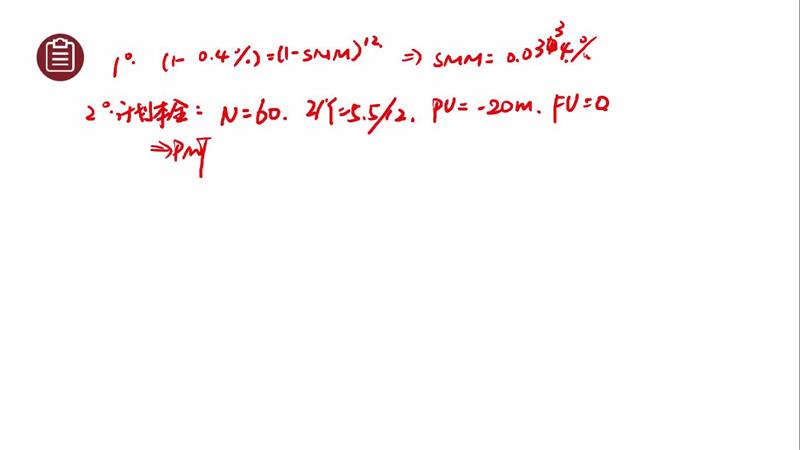 1°. (1- 0.4%)=(1-SMM)^12 ⇒ SMM= 0.0334%
2°.计划本金: N=60. I/Y=5.5/12. PV= -20m. FV=0
⇒PMT